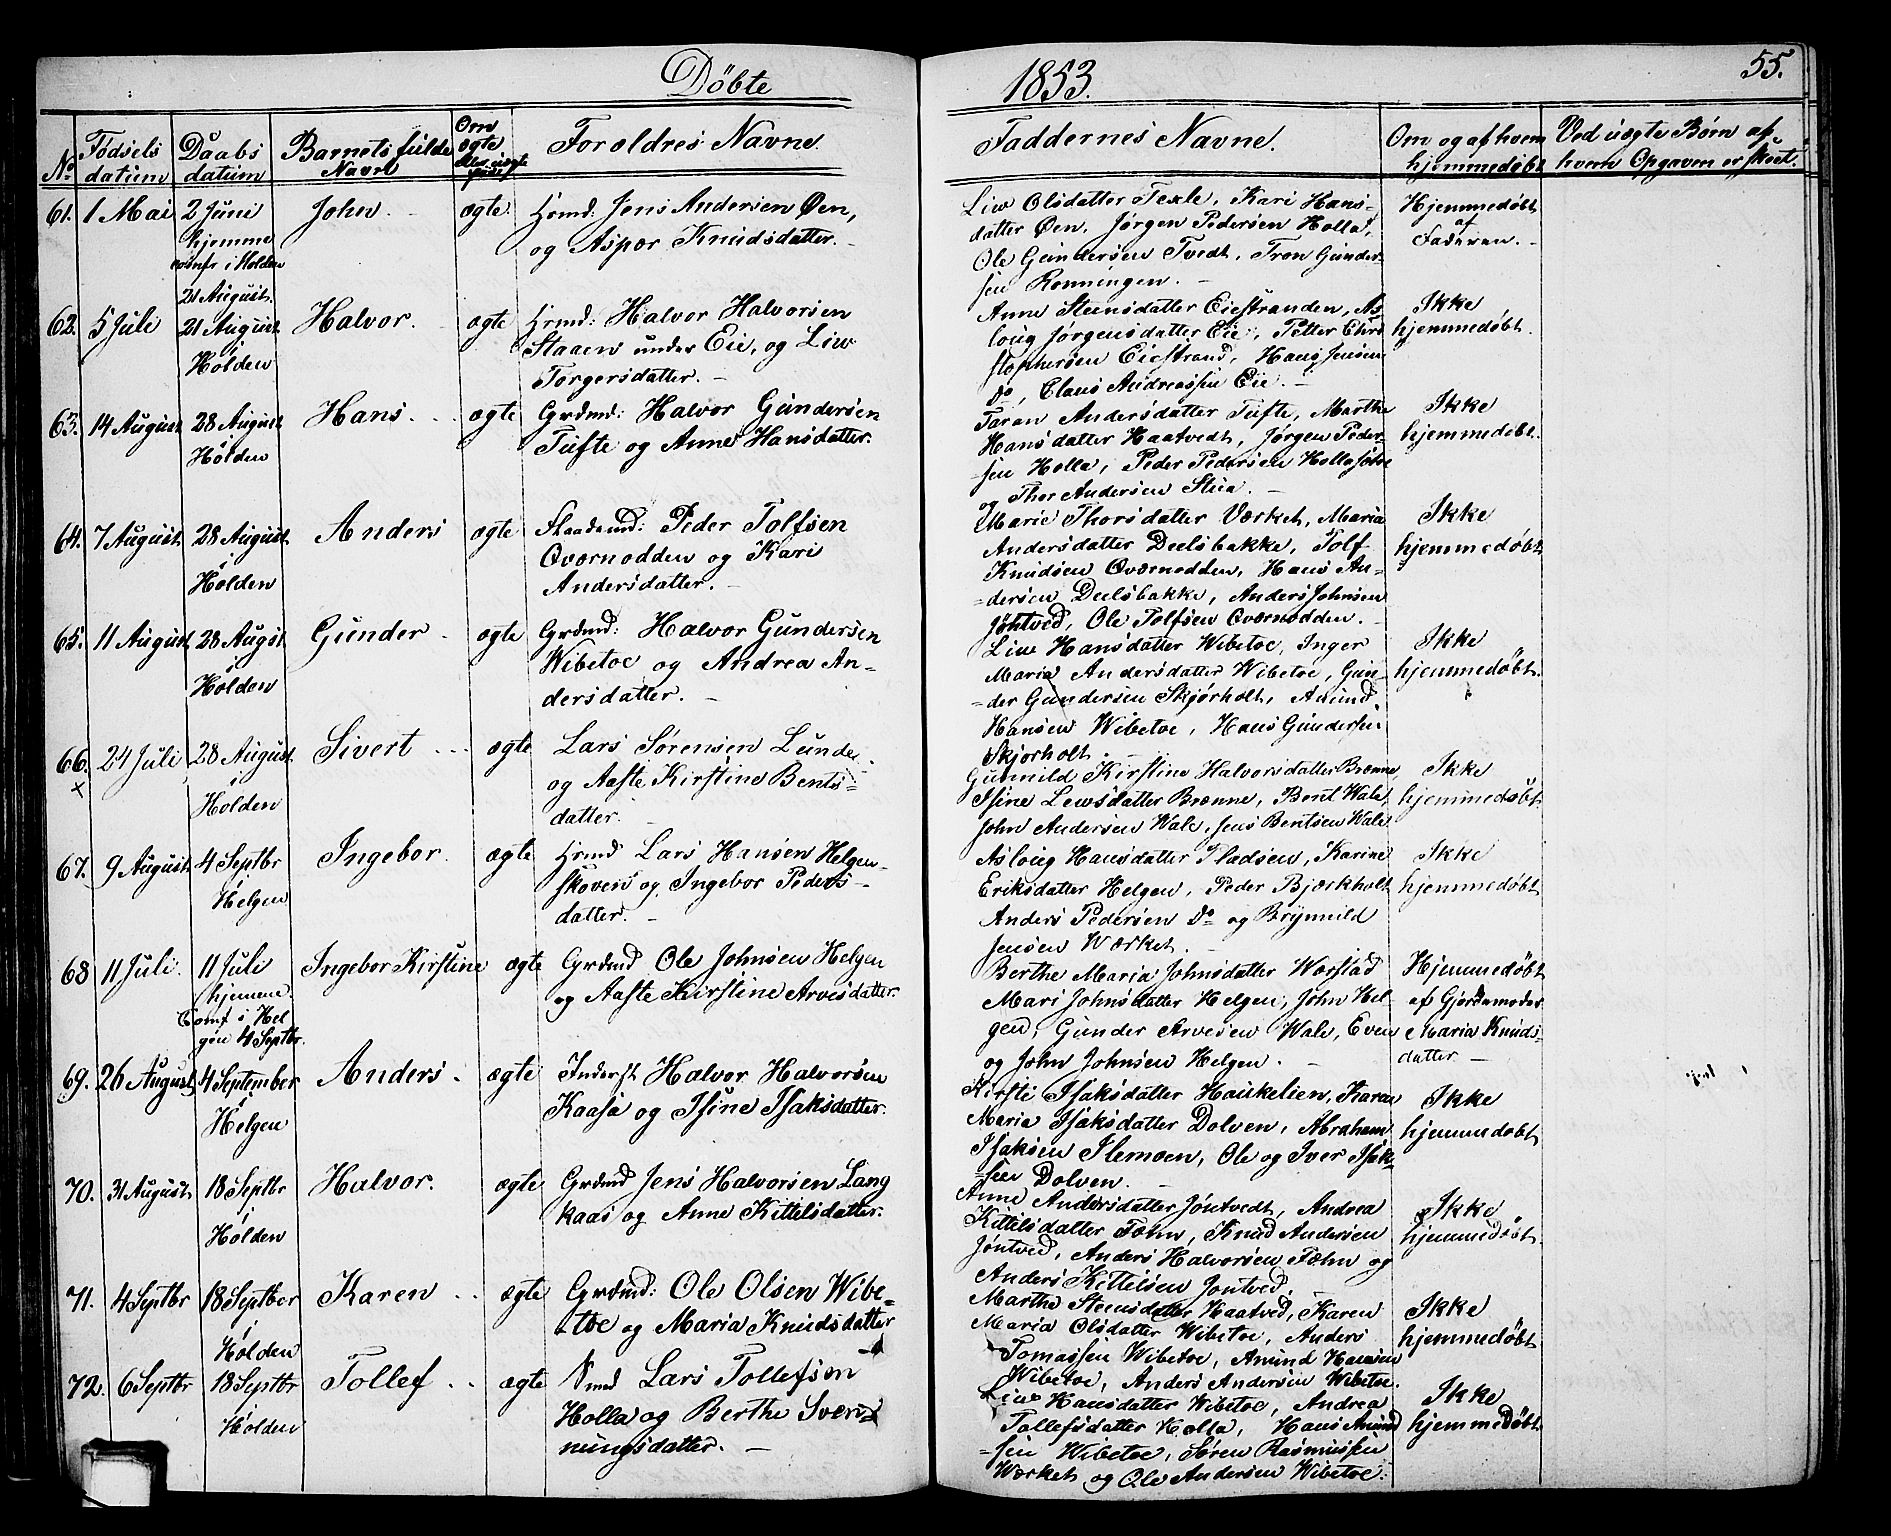 Döbte
1853.
55.
No
Födsels
datum
Daabs
datum
Barnets fulde
Navn
Om
ægte
eller uægte
Forældres Navne
Faddernes Navne.
Om og af hvem
hjemmedöbt
Ved uægte Börn af
hvem Opgaven er skeet.
61.
1 Mai
2 Juni
hjemme
confr i Holden
21 August.
John
ægte
Hrmd: Jens Andersen Øen,
og Aspor Knudsdatter.
Liw Olsdatter Texle, Kari Hans-
datter Øen, Jørgen Pedersen Holla,
Ole Gundersen Tvedt, Tron Gunder
sen Rønningen.
Hjemmedøbt
af
Faderen.
62.
5 Juli
21 August
i
Holden
Halvor.
ægte
Hrmd: Halvor Halvorsen
Staaen under Eie, og Liw
Torgersdatter.
Anne Steensdatter Eiestranden, As
loug Jørgensdatter Eie, Petter Chri
stophersen Eiestrand, Hans Jensen
Do, Claus Andreassen Eie.
Ikke
hjemmedøbt.
63.
14 August
28 August
i
Holden
Hans.
ægte
Grdmd: Halvor Gundersen
Tufte og Anne Hansdatter.
Taran Andersdatter Tufte, Marthe
Hansdatter Haatvedt, Jørgen Peder-
sen Holla, Peder Pedersen Holla
og Thor Andersen Stua.
Ikke
hjemmedöbt.
64.
7 August
28 August
i
Holden
Anders
ægte
Peder Tolfsen
Qvernodden og Kari
Andersdatter.
Marie Thorsdatter Værket, Maria
Andersdatter Deelsbakke, Tolf
Knudsen Qværnodden, Hans An-
-dersen Deelsbakke, Anders Johnsen
Jöntved, Ole Tolfsen Qværnodden.
Ikke
hjemmedøbt
65.
11 August
28 Augst
i
Holden
Gunder
ægte
Grdmd: Halvor Gundersen
Wibetoe og Andrea An-
dersdatter.
Liw Hansdatter Wibetoe, Inger
Maria Andersdatter Wibetoe, Gun-
-der Gundersen Skjørholt, Amund
Hansen Wibetoe, Hans Gundersen
Skjorholt.
Ikke
hjemmedøbt.
66.
x
24 Juli
28 August
i
Holden
Sivert
ægte
Lars Sørensen Lunde
og Aaste Kirstine Bents-
datter.
Gunnild Kirstine Halvorsdatter Brenne,
Isine Lewsdatter Brenne, Bent Wale,
John Andersen Wale, Jens Bentsen Wale
Ikke
hjemmedøbt
67.
9 August
4 Septbr
i
Helgen
Ingebor.
ægte
Hrmd Lars Hansen Helgen-
skoven og Ingebor Peders-
datter.
Asloug Hansdatter Pladsen, Karine
Eriksdatter Helgen, Peder Bjerkholt
Anders Pedersen Do og Brynnild
Jensen Værket.
Ikke
hjemmedøbt
68
11 Juli.
11 Juli
hjemme.
Comf i Hel
gen 4 Septbr.
Ingebor Kirstine
ægte
Grdmd Ole Johnsen Helgen
og Aaste Kirstine Arvesdatter.
Berthe Maria Johnsdatter Worstad
Mari Johnsdatter Helgen, John Hel-
gen, Gunder Arvesen Wale, Even
og John Johnsen Helgen.
Hjemmedøbt
af Gjordemoder
Maria Knuds-
datter
69.
26 August
4 September
i
Helgen
Anders
ægte
Inderst Halvor Halvorsen
Kaasa og Isine Isaksdatter.
Kirsti Isaksdatter Haukelien, Karen
Maria Isaksdatter Dolven, Abraham
Isaksen Slemoen, Ole og Iver Isak-
-sen Dolven.
Ikke
hjemmedøbt
70.
31 August
18 Septbr
i
Holden
Halvor.
ægte
Grdmd Jens Halvorsen Lang
kaas og Anne Kittilsdatter.
Anne Andersdatter Jöntvedt, Andrea
Kittilsdatter Fæhn, Knud Andersen
Jöntved, Anders Halvorsen Fæhn og
Anders Kittilsen Jontved.
Ikke
hjemmedøbt.
71.
4 Septbr
18 Septber
i
Holden
Karen
ægte
Grdmd: Ole Olsen Wibe-
-toe og Maria Knudsdatter
Marthe Steensdatter Haatved, Karen
Maria Olsdatter Wibetoe, Anders
Tomassen Wibetoe, Amund Hansen
Wibetoe, Anders Andersen Wibetoe.
Ikke
hjemmedøbt
72.
6 Septbr
18 Septbr
i
Holden
Tollef
ægte
Lars Tollefsen
Holla og Berthe Sven
nungsdatter.
Liw Hansdatter Wibetoe, Andrea
Tollefsdatter Holla, Hans Amund
-sen Wibetoe, Søren Rasmussen
Værket og Ole Andersen Wibetoe.
Ikke
hjemmedøbt